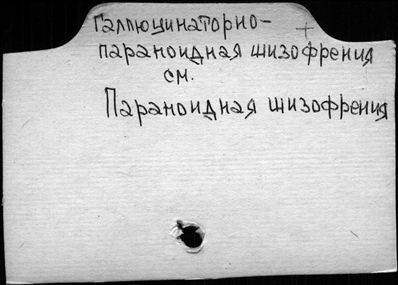 Галлюцинаторно-
параноидная шизофрения
см.
Параноидная шизофрения